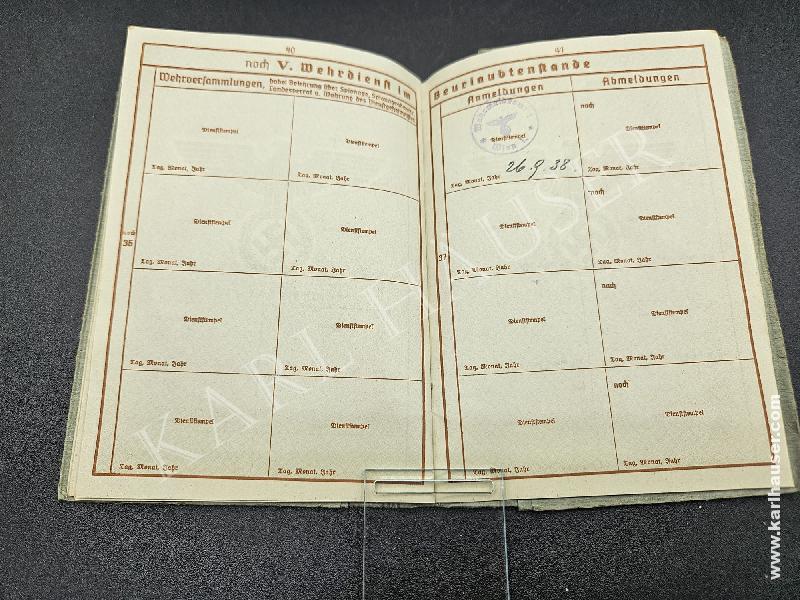 40
noch V. Wehrdienst im
Wehrversammlungen,
Dienststempel
Dienststempel
Tag, Monat, Jahr
Tag, Monat, Jahr
noch
36
Dienststempel
Dienststempel
Tag, Monat, Jahr
Tag, Monat, Jahr
Dienststempel
Dienststempel
Tag, Monat, Jahr
Tag, Monat, Jahr
Dienststempel
Dienststempel
Tag, Monat, Jahr
Tag, Monat, Jahr
41
Beurlaubtenstande
Anmeldungen
Abmeldungen
noch
Wien
Dienststempel
Dienststempel
Tag, Monat, Jahr 26.9.38.
Tag, Monat, Jahr
37
noch
Dienststempel
Dienststempel
Tag, Monat, Jahr
Tag, Monat, Jahr
noch
Dienststempel
Dienststempel
Tag, Monat, Jahr
Tag, Monat, Jahr
noch
Dienststempel
Dienststempel
Tag, Monat, Jahr
Tag, Monat, Jahr
KARL HAUSER
www.karlhauser.com